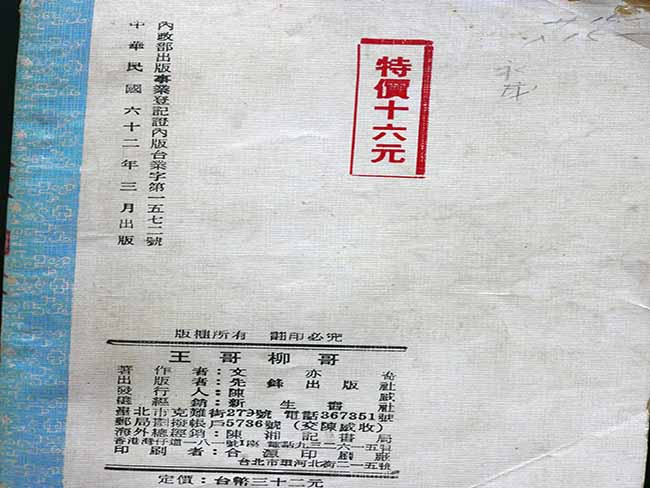 內政部出版事業登記證內版台業字第一五七二號
中華民國六十二年三月出版
特價十六元
版權所有 翻印必究
王哥柳哥
著作者：文亦奇
出版者：先鋒出版社
發行人：陳威
經銷：新生書社
臺北市克難街279號 電話367351號
郵局劃撥帳戶5736號（交陳威收）
海外總經銷：陳湘記書局
香港灣仔道一八一號 電話九三一六一五
印刷者：合源印刷廠
台北市環河北街二一五號
定價：台幣三十二元